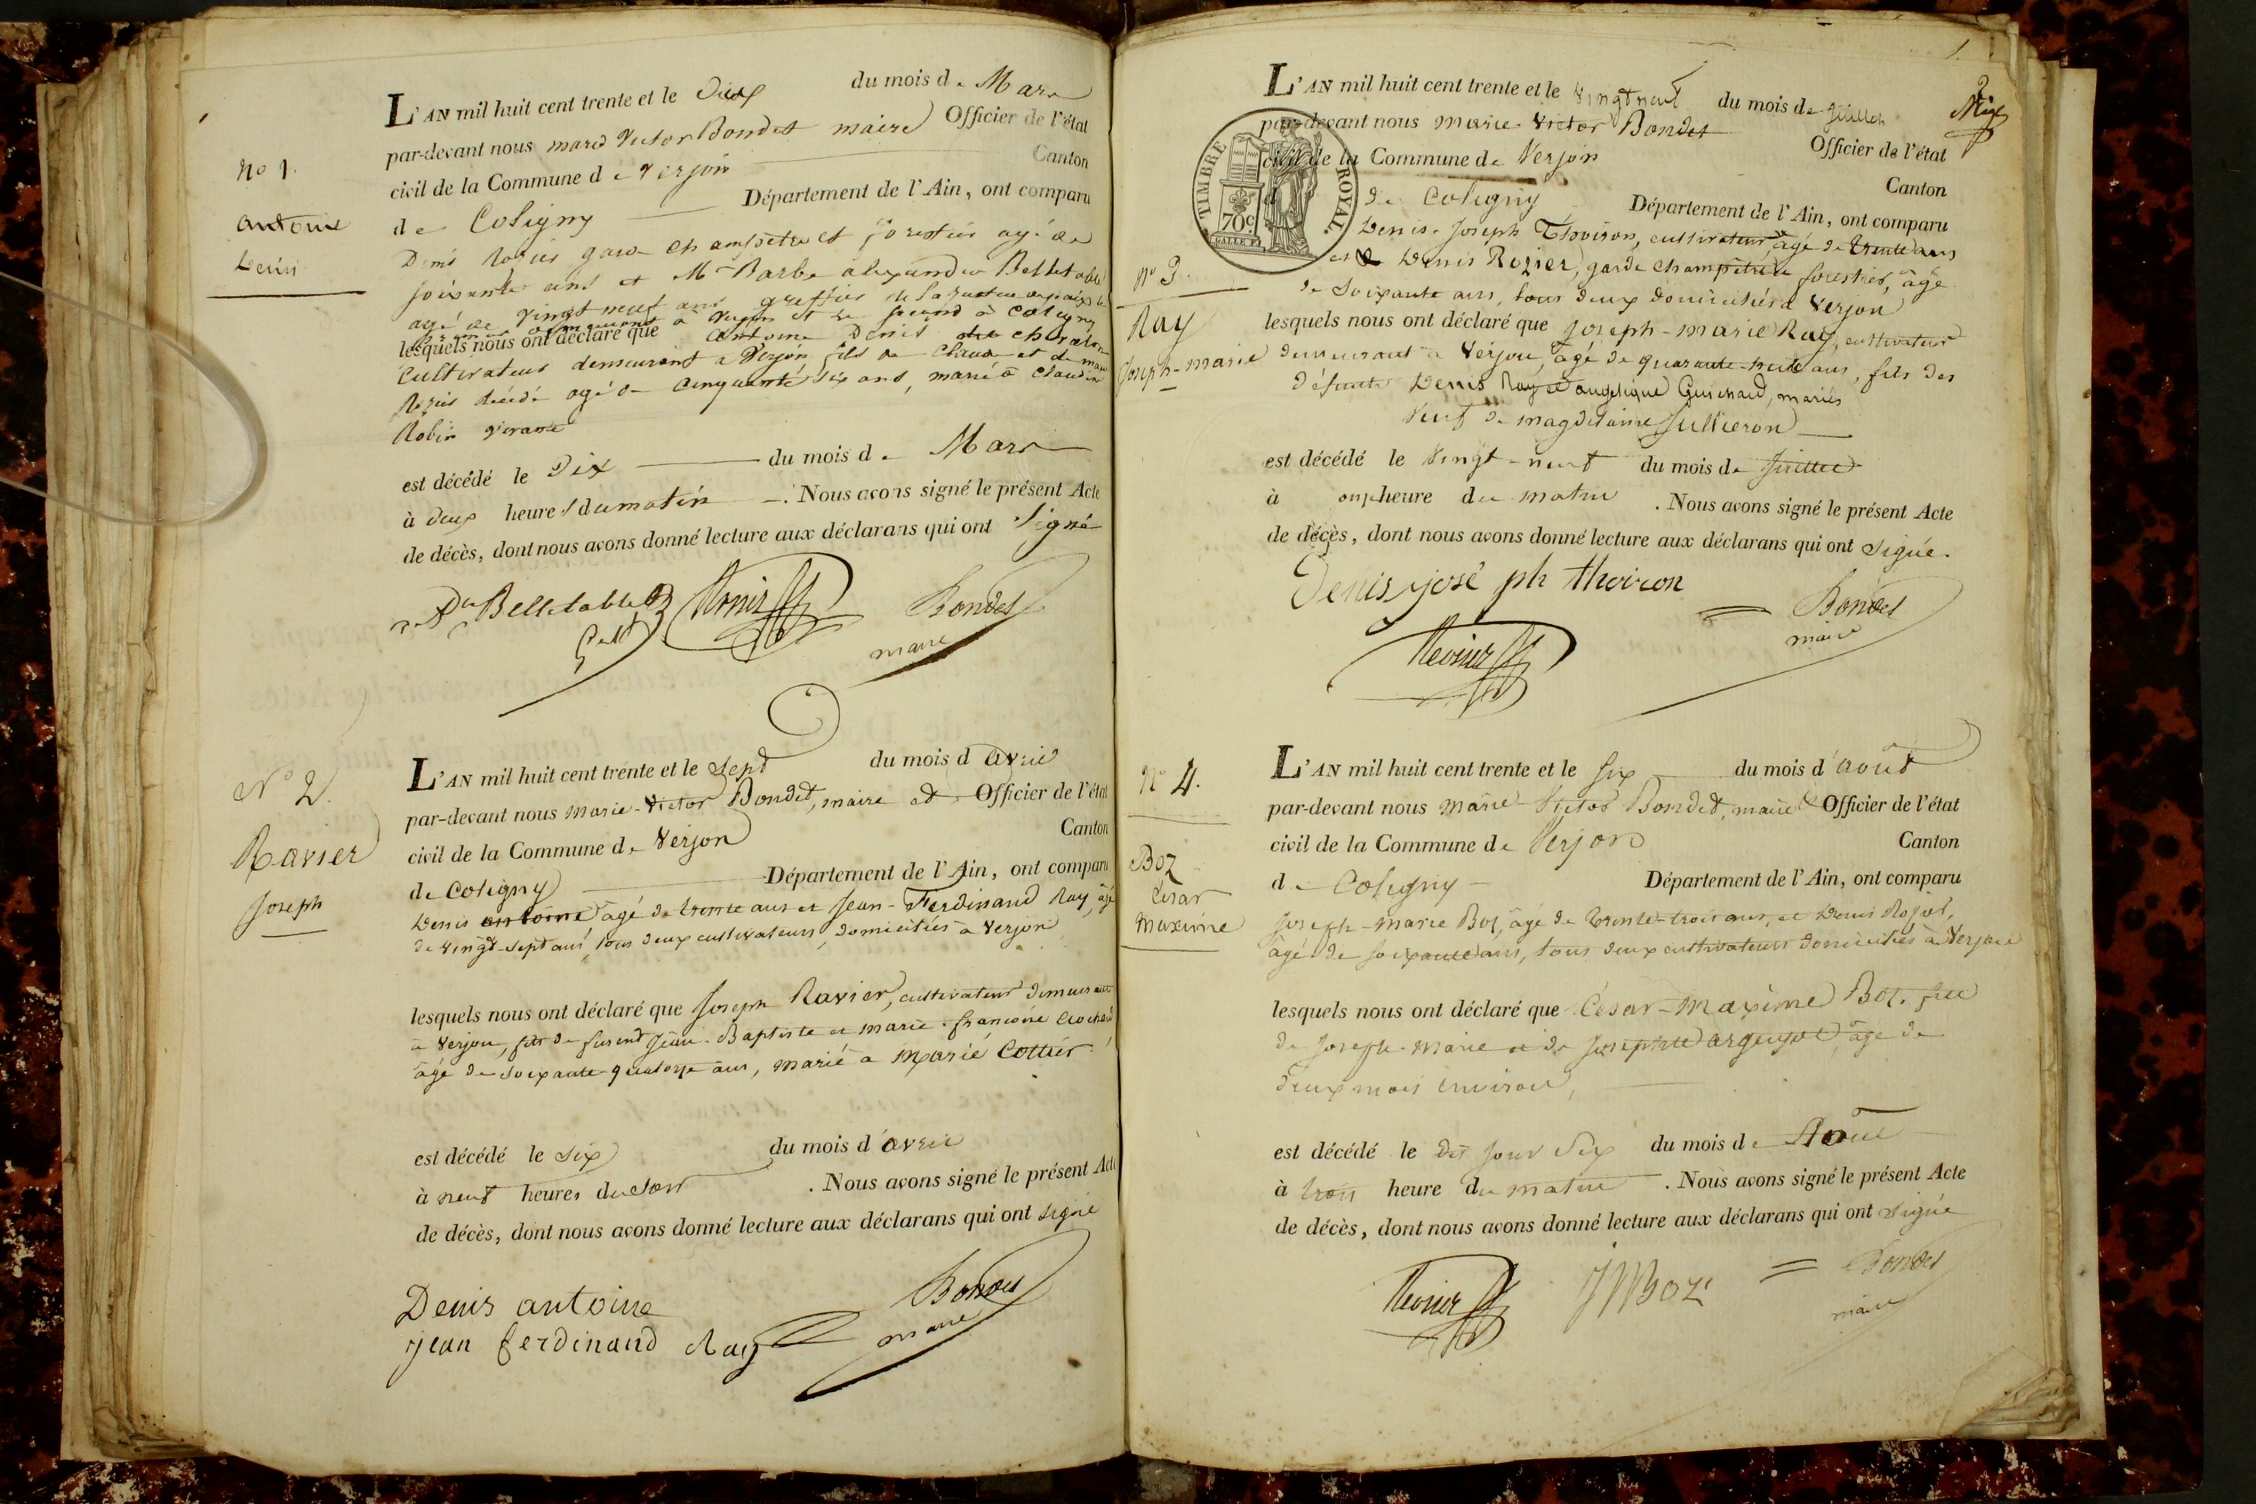 No 1.
antoine
Denis
L'AN mil huit cent trente et le Dix du mois de Mars
par-devant nous marie Victor Bondet maire Officier de l'état
civil de la Commune de Verjon Canton
de Coligny Département de l'Ain, ont comparu
Denis Rosier garde champêtre et forestier agé de
soixante ans et Mr Barbe alexandre Belletable
agé de vingt neuf ans greffier de la justice de paix le
à Verjon et le second à Coligny
lesquels nous ont déclaré que antoine Denis
cultivateur demeurant a Verjon fils de Claude et de
Rosier décédé agé de cinquante six ans, marié à Claudine
Robin vivante
est décédé le Dix du mois de Mars
à deux heures du matin. Nous avons signé le présent Acte
de décès, dont nous avons donné lecture aux déclarans qui ont signé
Belletable Rosier Bondet
maire
No 2.
Ravier
Joseph
L'AN mil huit cent trente et le Sept du mois d'avril
par-devant nous marie-Victor Bondet, maire et Officier de l'état
civil de la Commune de Verjon Canton
de Coligny Département de l'Ain, ont comparu
Denis antoine âgé de trente ans et Jean-Ferdinand Ray, âgé
de vingt-sept ans, tous deux cultivateurs, domiciliés à Verjon
lesquels nous ont déclaré que Joseph Ravier, cultivateur demeurant
à Verjon, fils de Jean-Baptiste et marie-françoise
âgé de soixante quatorze ans, marié à Marie Cottier
est décédé le six du mois d'avril
à neuf heures du soir. Nous avons signé le présent Acte
de décès, dont nous avons donné lecture aux déclarans qui ont signé
Denis antoine Bondet
jean ferdinand Ray maire
1.
2
TIMBRE ROYAL.
70c
No 3.
Ray
Joseph-marie
L'AN mil huit cent trente et le vingt neuf du mois de Juillet
par-devant nous marie-Victor Bondet Officier de l'état
civil de la Commune de Verjon Canton
de Coligny Département de l'Ain, ont comparu
Denis-Joseph Thoiron, cultivateur âgé de trente ans
et Denis Rozier, garde champêtre forestier, âgé
de soixante ans, tous deux domiciliés à Verjon
lesquels nous ont déclaré que Joseph-marie Ray, cultivateur
demeurant à Verjon, âgé de quarante-huit ans, fils des
défunts Denis Ray et angelique Guichard, mariés
veuf de magdelaine Jullieron
est décédé le vingt-neuf du mois de Juillet
à onze heure du matin. Nous avons signé le présent Acte
de décès, dont nous avons donné lecture aux déclarans qui ont signé.
Denis josé ph thoiron Bondet
Rosier maire
No 4.
Boz
César
Maxime
L'AN mil huit cent trente et le six du mois d'août
par-devant nous marie Victor Bondet, maire & Officier de l'état
civil de la Commune de Verjon Canton
de Coligny Département de l'Ain, ont comparu
Joseph-marie Boz, âgé de trente-trois ans, et Denis Rosier,
âgé de soixante ans, tous deux cultivateurs domiciliés à Verjon
lesquels nous ont déclaré que César-Maxime Boz, fils
de Joseph-marie et de Josephte âgé de
deux mois environ,
est décédé le dit jour six du mois de Août
à trois heure du matin. Nous avons signé le présent Acte
de décès, dont nous avons donné lecture aux déclarans qui ont signé
Rosier JM Boz Bondet
maire